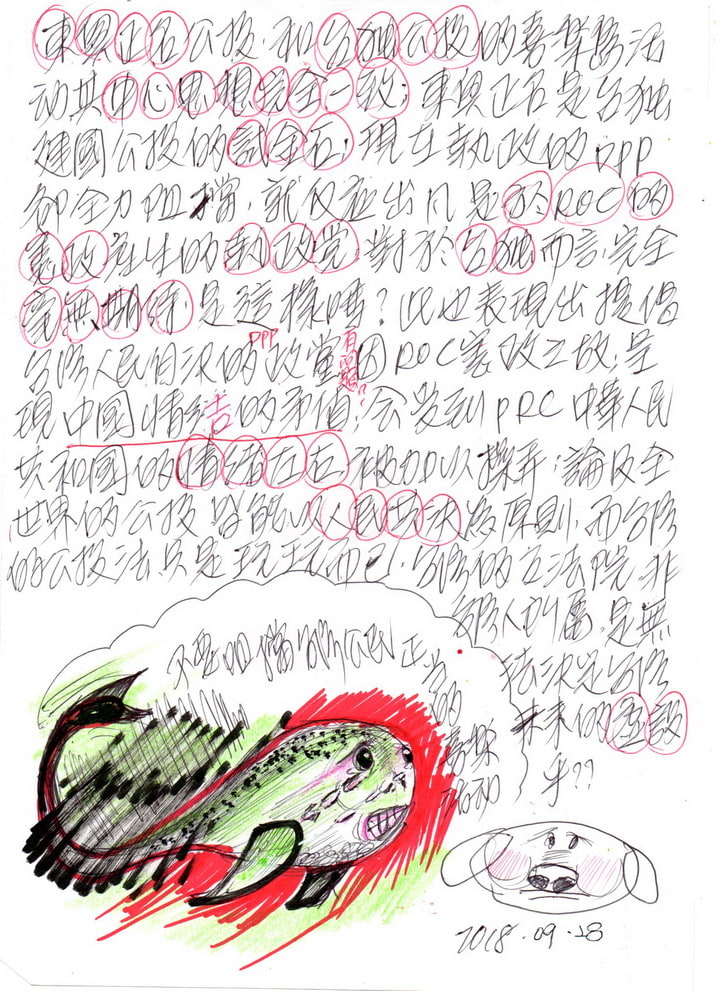 東奧正名公投,和台獨公投的喜樂島活
動其中心思想完全一致;東奧正名是台獨
建國公投的試金石;現在執政的DPP
卻全力阻擋,就反應出凡是於ROC的
憲政產生的執政党,對於台獨而言,完全
毫無期待;是這樣嗎?此也表現出提倡
台灣人民自決的政堂因ROC憲政之故,呈
DPP
有問題??
現中國情結的矛循;会受到PRC中華人民
共和國的情緒左右被加以操弄;論及全
世界的公投皆能以人民公決為原則,而台灣
的公投法只是玩玩而已,台灣的立法院,非
台灣人所屬,是無
法決定台灣
未來的虛設
乎??
不要阻擋台灣公民正当
的
喜樂
活動
2018.09.28